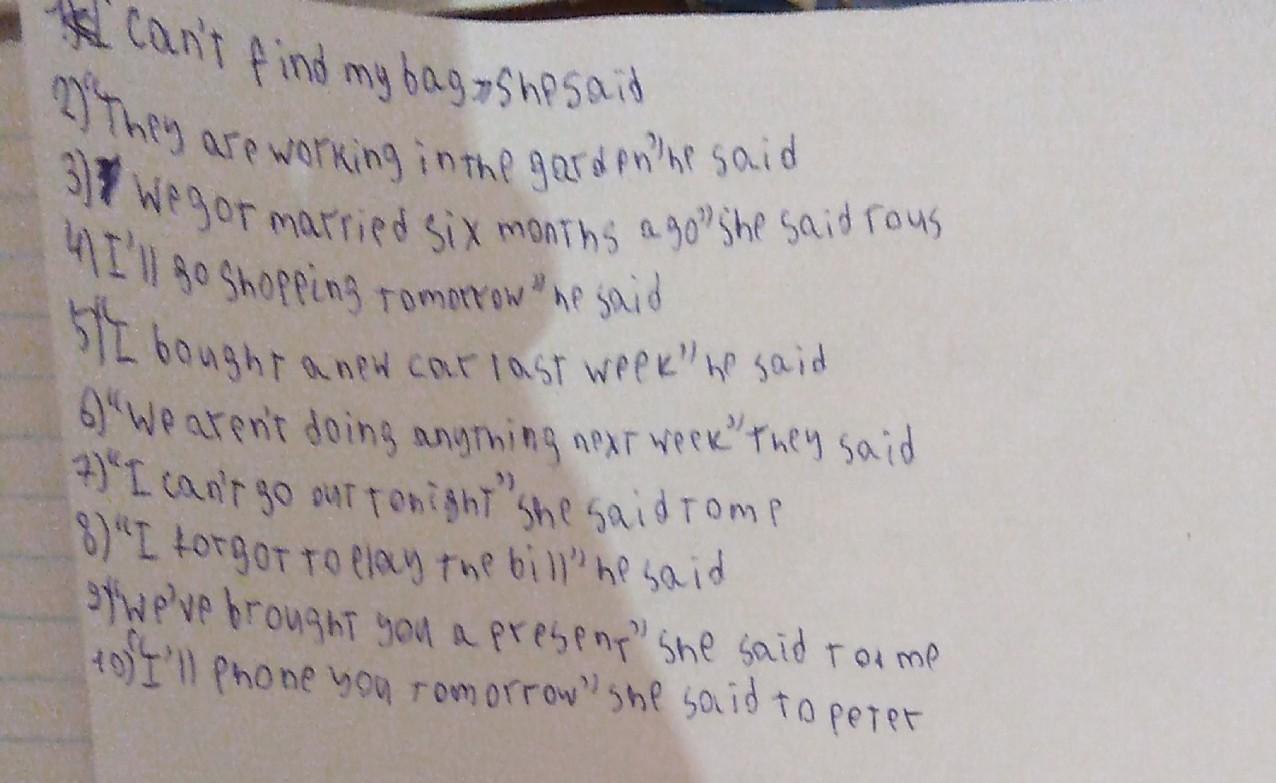 I can't find my bag" she said
2) "They are working in the garden" he said
3) We got married six months ago" she said to us
4) I'll go shopping tomorrow" he said
5) "I bought a new car last week" he said
6) "We aren't doing anything next week" they said
7) "I can't go out tonight" she said to me
8) "I forgot to play the bill" he said
9) "We've brought you a present" she said to me
10) "I'll phone you tomorrow" she said to peter